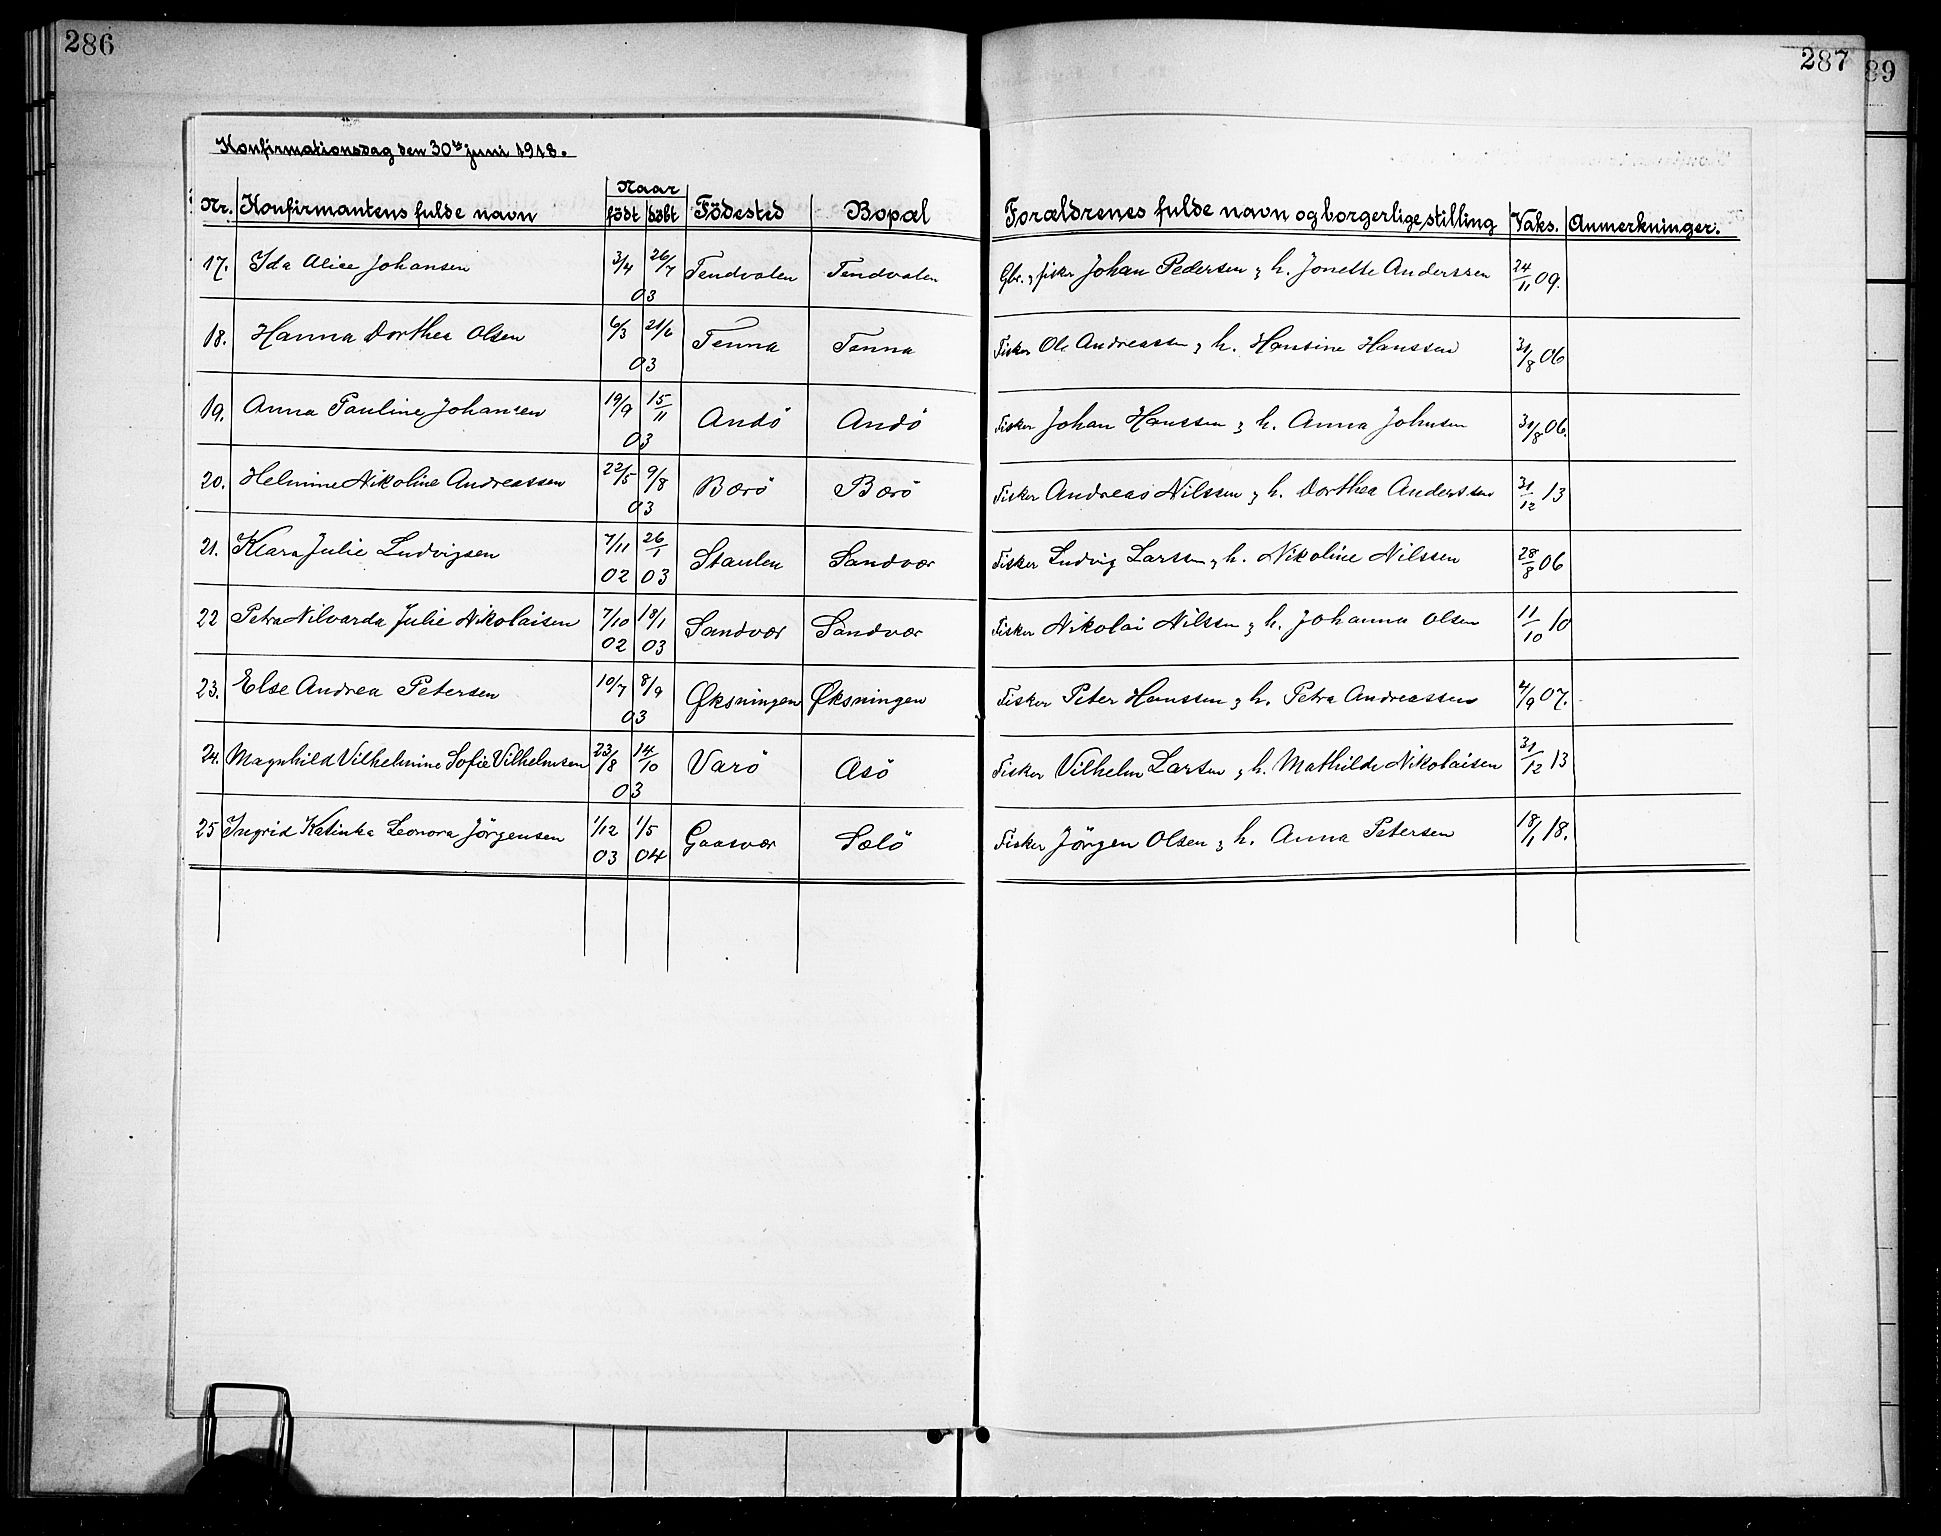 286
287
89
Konfirmationsdag den 30te juni 1918.
Nr. Konfirmantens fulde navn Naar födt döbt Födested Bopæl Forældrenes fulde navn og borgerlige stilling Vaks. Anmerkninger.
17. Ida Alice Johansen 3/4 26/7 03 Tendvalen Tendvalen Gbr. & fisker Johan Pedersen & h. Jonette Anderssen 24/11 09.
18. Hanna Dorthea Olsen 6/3 21/6 03 Tenna Tenna Fisker Ole Andreassen & h. Hansine Hanssen 31/8 06
19. Anna Pauline Johansen 19/9 15/11 03 Andö Andö Fisker Johan Hanssen & h. Anna Johnsen 31/8 06.
20. Helmine Nikoline Andreassen 22/5 9/8 03 Bærö Bærö Fisker Andreas Nilssen & h. Dorthea Anderssen 31/12 13
21. Klara Julie Ludvigsen 7/11 02 26/1 03 Staulen Sandvær Fisker Ludvig Larssen & h. Nikoline Nilssen 28/8 06
22 Petra Nilvarda Julie Nikolaisen 7/10 02 18/1 03 Sandvær Sandvær Fisker Nikolai Nilssen & h. Johanna Olsen 11/10 10
23. Else Andrea Petersen 10/7 8/9 03 Øksningen Øksningen Fisker Peter Hanssen & h. Petra Andreassen 4/9 07.
24. Magnhild Vilhelmine Sofie Vilhelmsen 23/8 14/10 03 Varö Asö Fisker Vilhelm Larsen & h. Mathilde Nikolaisen 31/12 13
25 Ingrid Katinka Leonora Jörgensen 1/12 03 1/5 04 Gaasvær Sælö Fisker Jörgen Olsen & h. Anna Petersen 18/1 18.